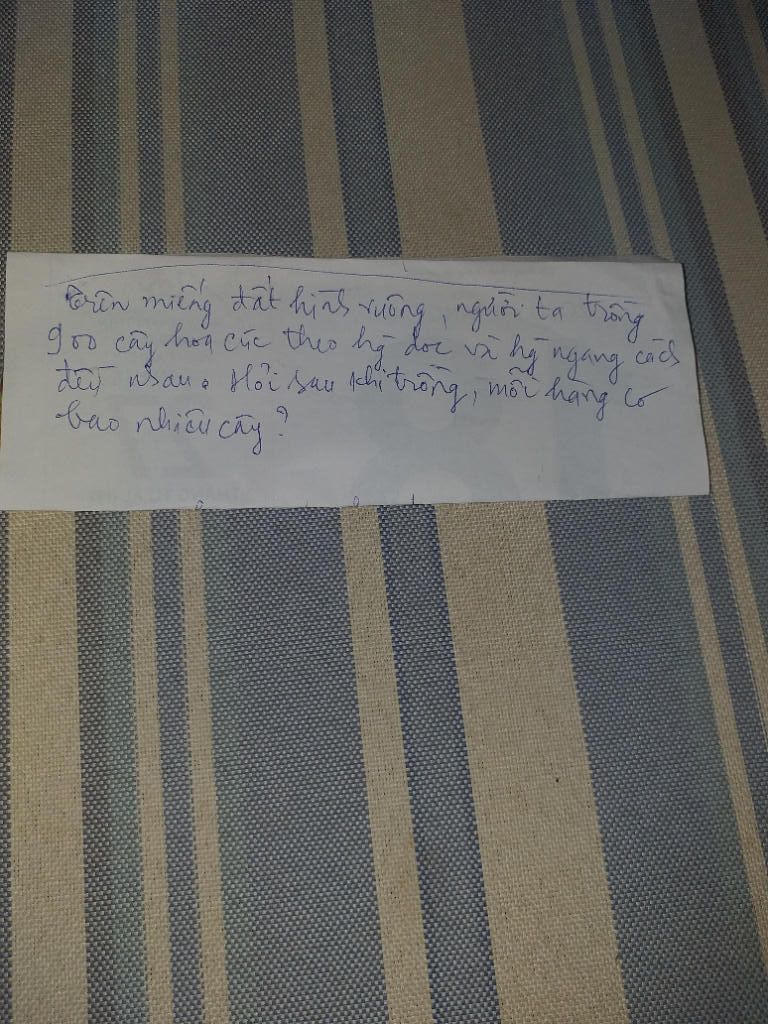 Trên miếng đất hình vuông, người ta trồng
900 cây hoa cúc theo hg dọc và hg ngang cách
đều nhau. Hỏi sau khi trồng, mỗi hàng có
bao nhiêu cây?